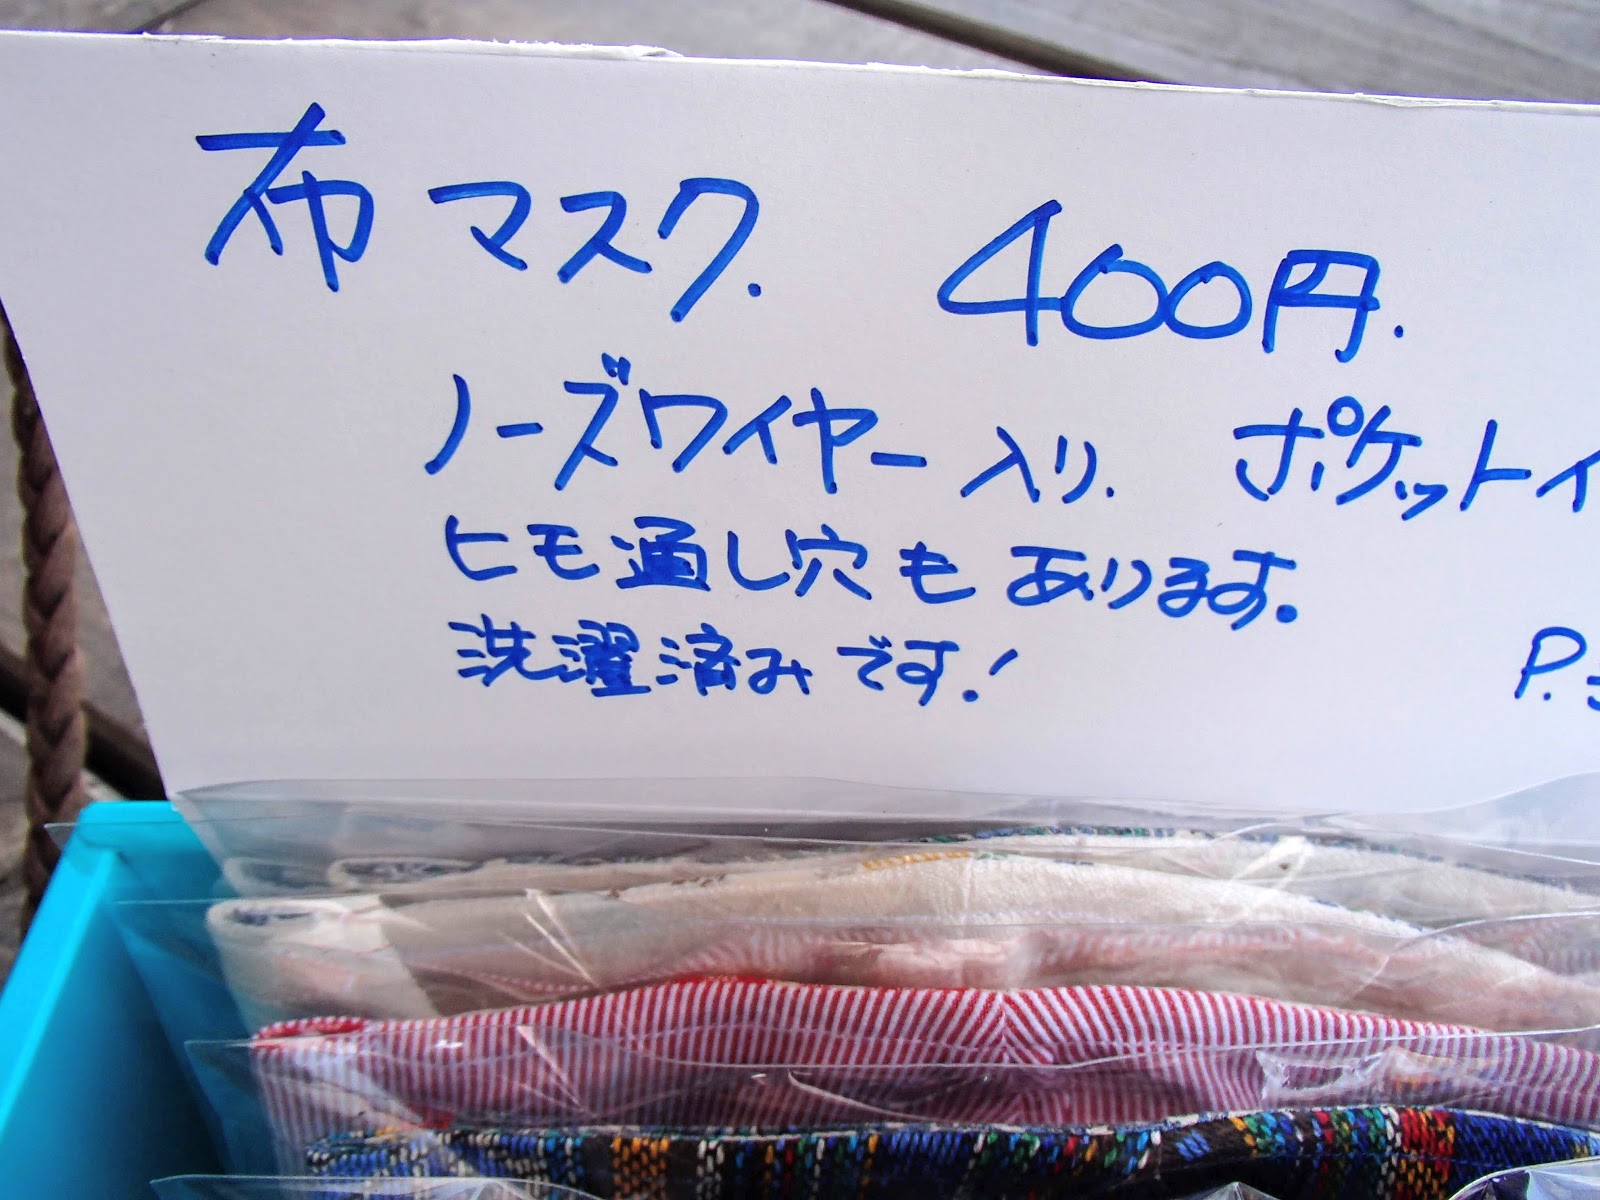 布マスク. 400円.
ノーズワイヤー入り. ポケット
ヒモ通し穴もあります。
洗濯済みです!
P.